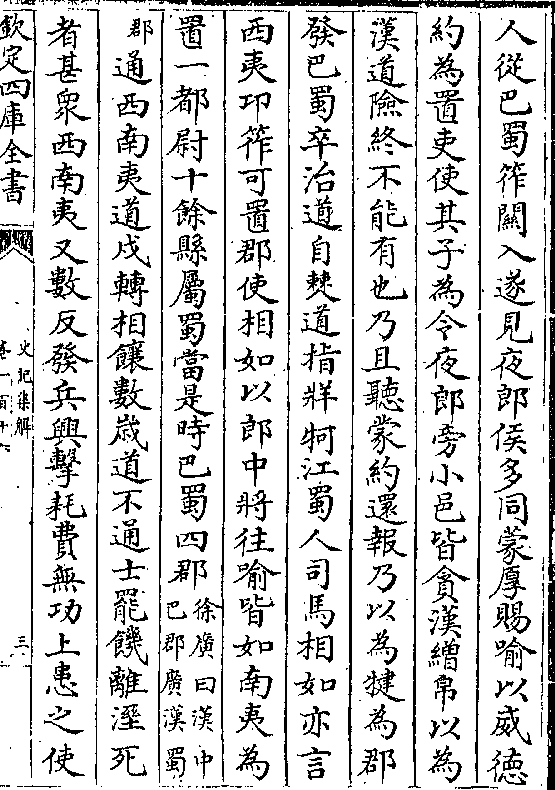 人從巴蜀筰關入遂見夜郎侯多同蒙厚賜喻以威徳
約為置吏使其子為令夜郎旁小邑皆貪漢繒帛以為
漢道險終不能有也乃且聽蒙約還報乃以為犍為郡
發巴蜀卒治道自僰道指牂牁江蜀人司馬相如亦言
西夷卭筰可置郡使相如以郎中將往喻皆如南夷為
置一都尉十餘縣屬蜀當是時巴蜀四郡徐廣曰漢中巴郡廣漢蜀
郡通西南夷道戍轉相饟數歲道不通士罷餓離溼死
者甚衆西南夷又數反發兵興擊耗費無功上患之使
欽定四庫全書
史記集解
卷一百十六
三